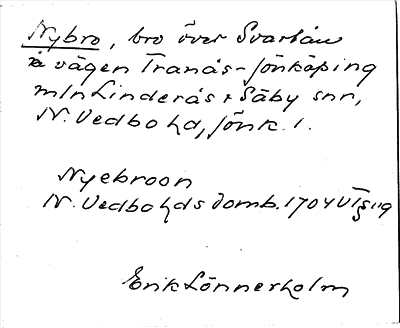 Nybro, bro över Svartån
å vägen Tranås-Jönköping
mln Linderås + Säby snr,
N. Vedbo hd, Jönk. l.
Nyebroon
N. Vedbo hds domb. 1704 VT § 119
Erik Lönnerholm